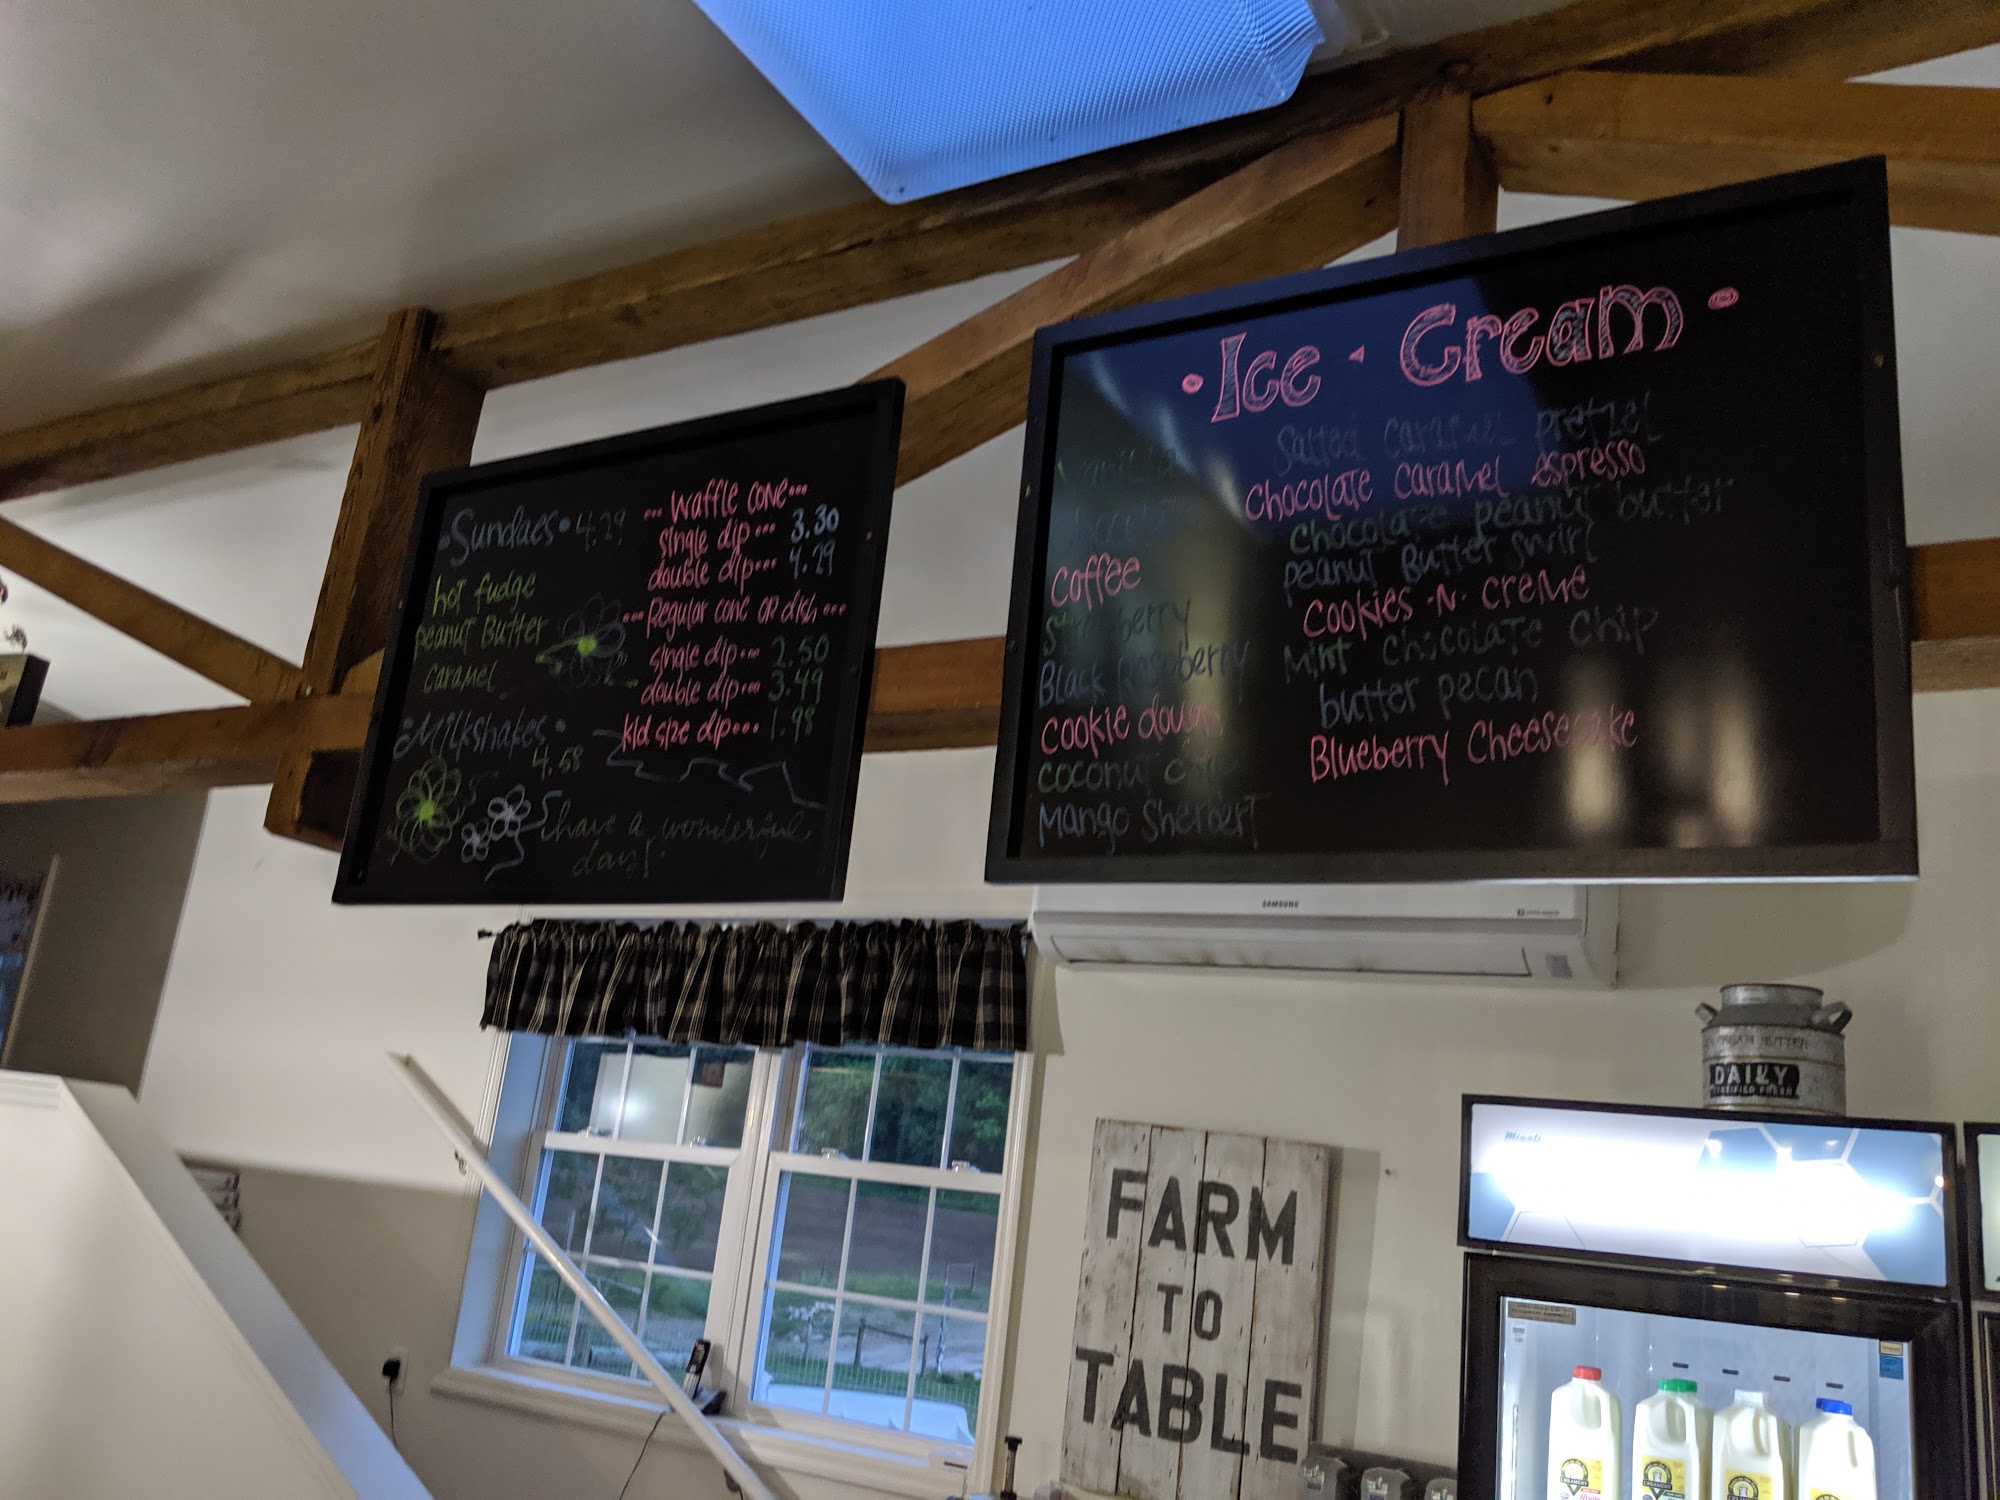 Sundaes • 4.29
hot fudge
peanut Butter
caramel
Milkshakes •
4.58
have a wonderful
day!
••• Waffle cone •••
single dip ••• 3.30
double dip ••• 4.29
••• Regular cone or dish •••
single dip ••• 2.50
double dip ••• 3.49
kid size dip ••• 1.98
• Ice • Cream •
Coffee
Strawberry
Black Raspberry
Cookie dough
coconut chip
Mango Sherbert
Salted Caramel pretzel
Chocolate Caramel espresso
Chocolate peanut butter
Peanut Butter swirl
Cookies -N- Creme
Mint Chocolate Chip
butter pecan
Blueberry Cheesecake
SAMSUNG
CREAM BUTTER
DAILY
CERTIFIED FRESH
Migali
FARM
TO
TABLE